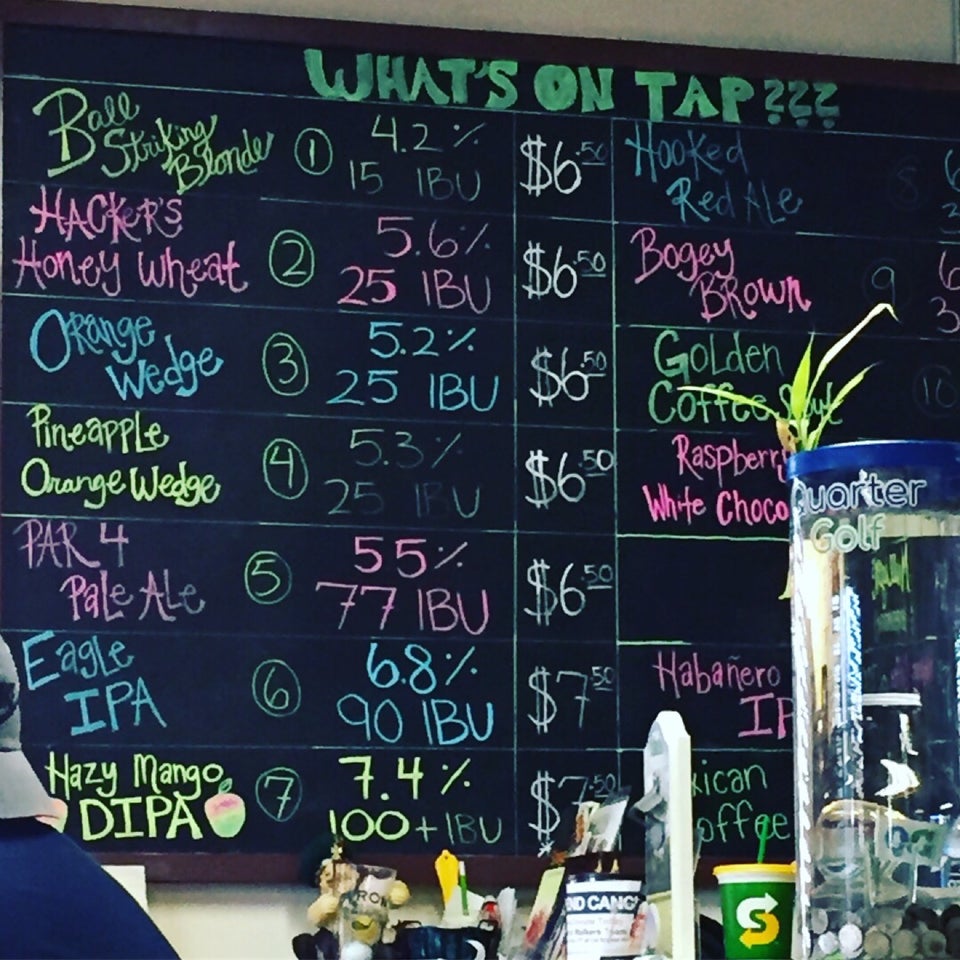 WHAT'S ON TAP???
Ball
Striking
Blonde
1
4.2%
15 IBU
$6.50
HACKER'S
Honey Wheat
2
5.6%
25 IBU
$6.50
Orange
Wedge
3
5.2%
25 IBU
$6.50
Pineapple
Orange Wedge
4
5.3%
25 IBU
$6.50
PAR 4
Pale Ale
5
55%
77 IBU
$6.50
Eagle
IPA
6
6.8%
90 IBU
$7.50
Hazy Mango
DIPA
7
7.4%
100+ IBU
$7.50
Hooked
Red Ale
8
Bogey
Brown
9
Golden
Coffee
10
Raspberry
White Choco
Habañero
IP
xican
offee
Quarter
Golf
S